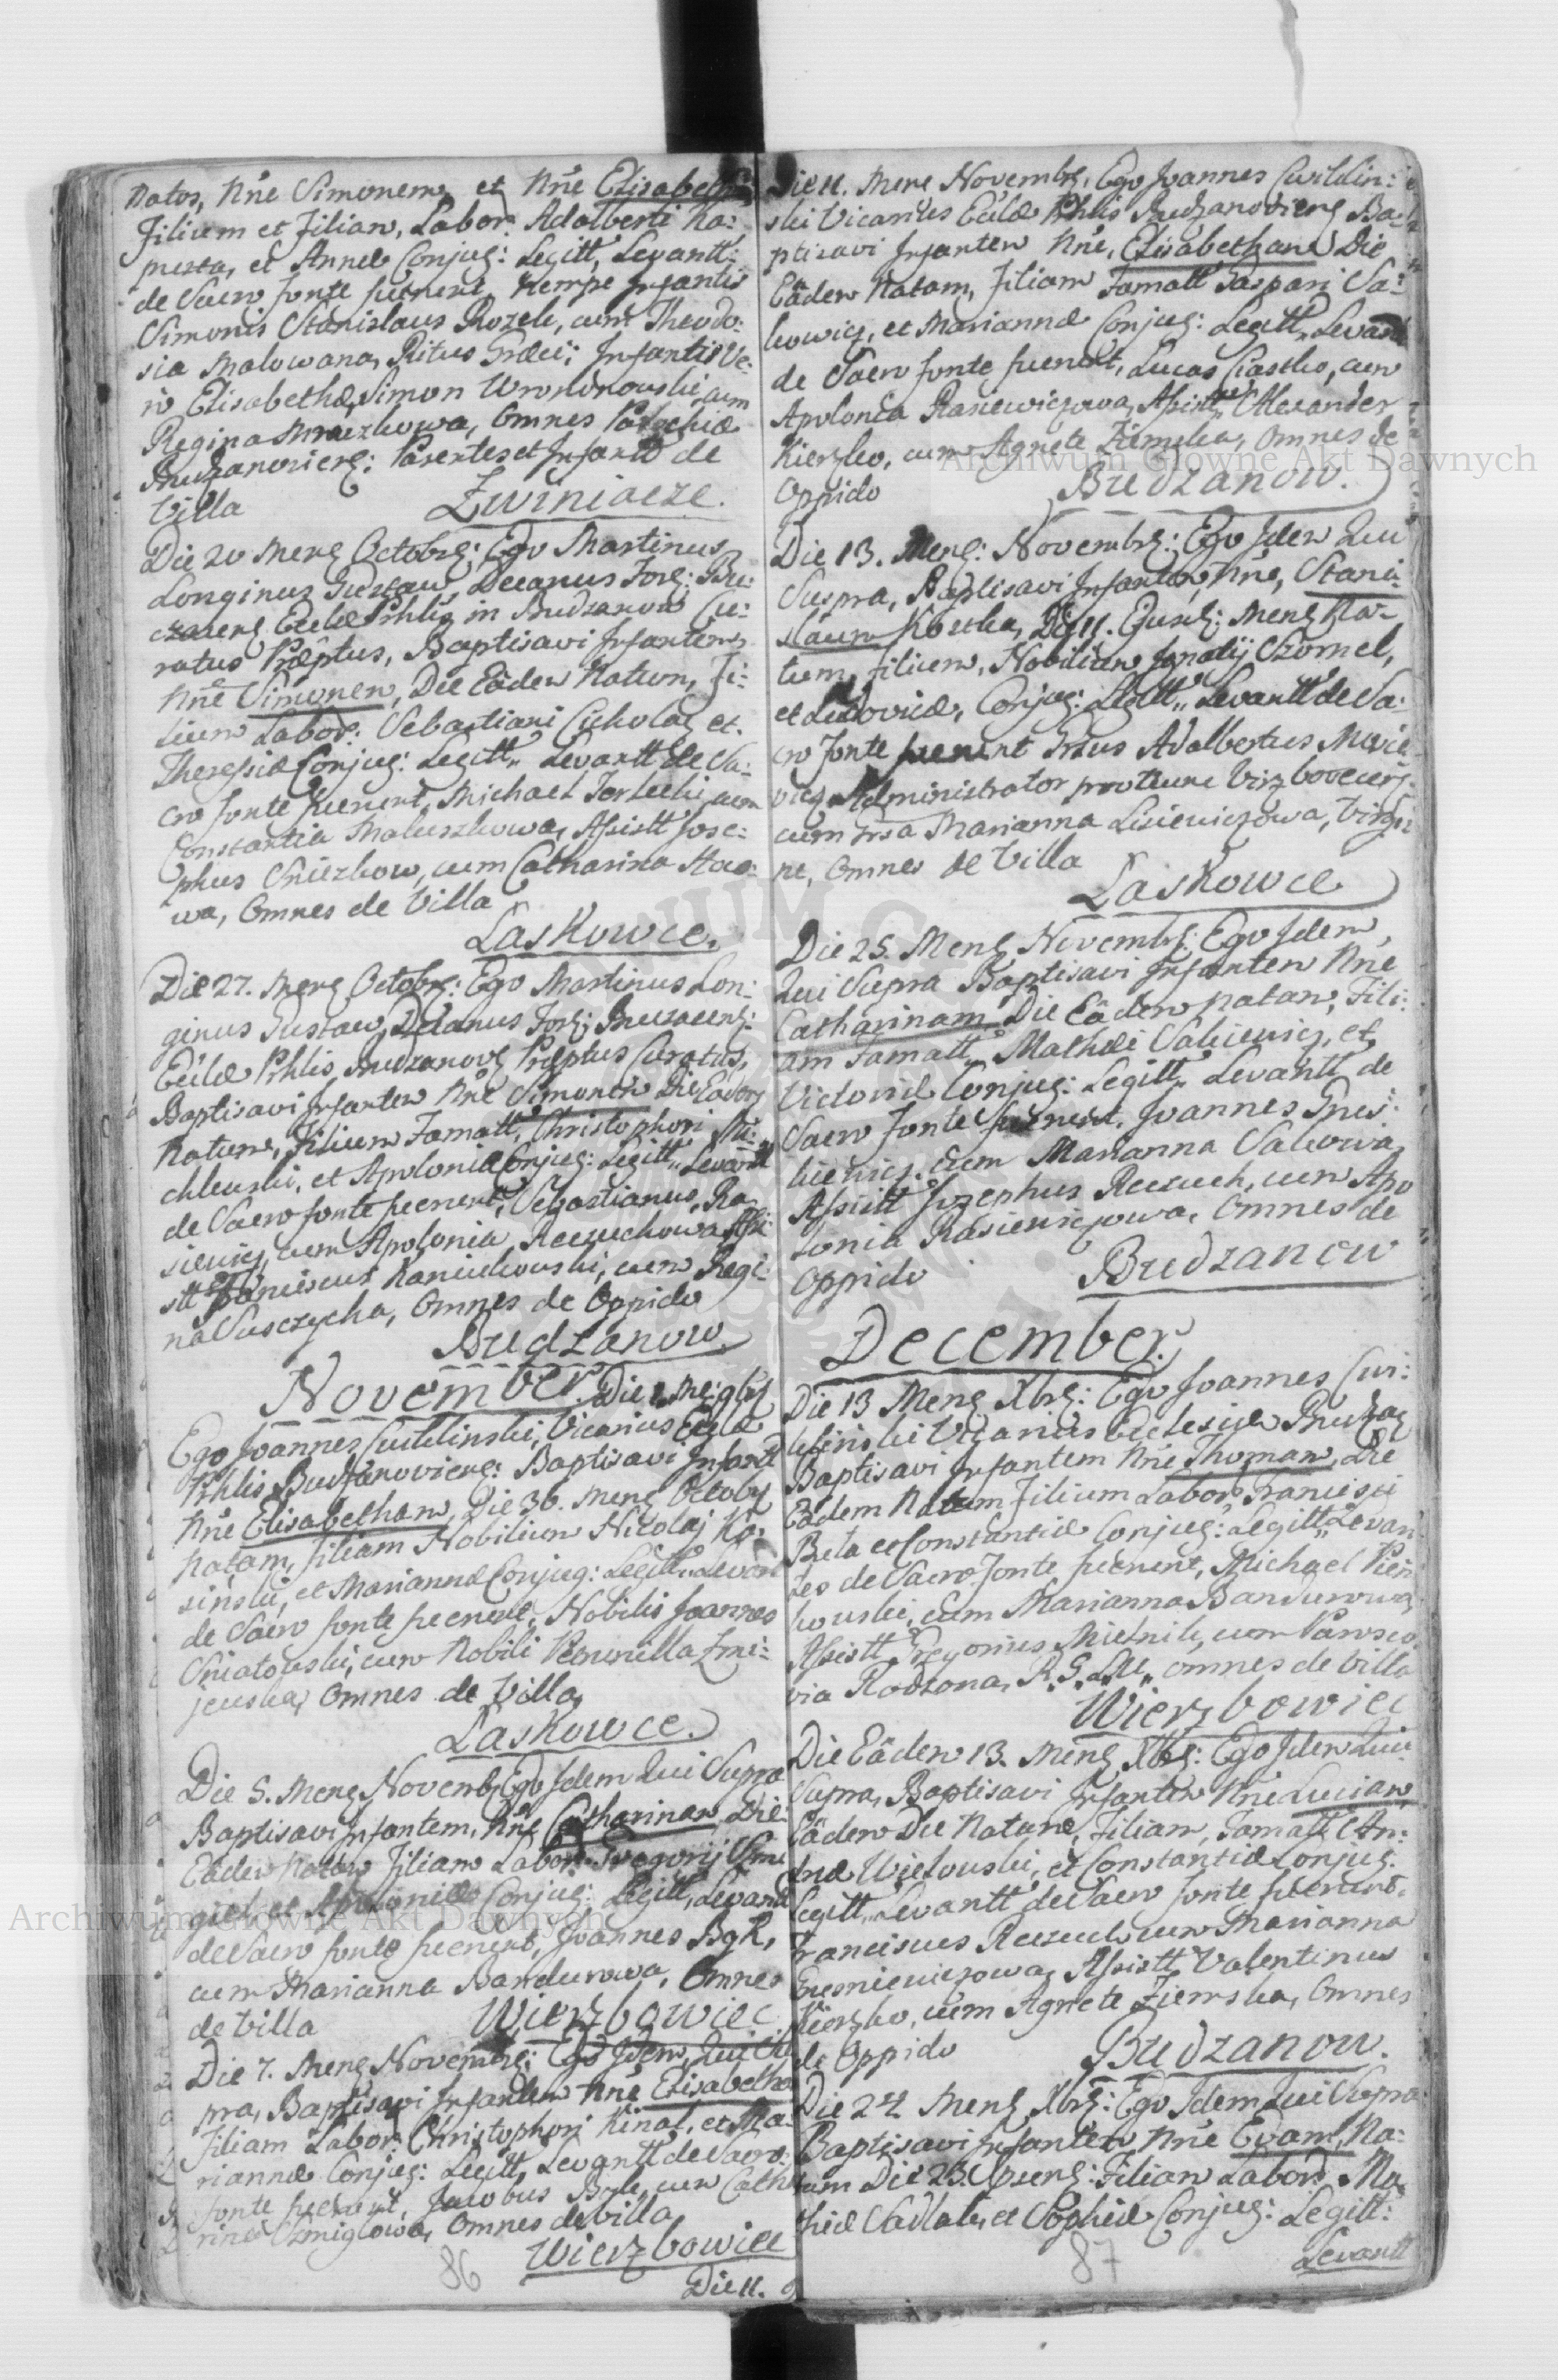 Natos, Nn̄e Simonem et Nn̄e Elisabeth
Filium et Filiam, Labor: Adalberti Ka:
pusta, et Annæ Conjug: Legitt, Levantt:
de Sacro fonte fuerunt, nempe Infantis
Simonis Stanislaus Rozek, cum Theodo:
sia Malowana, Ritus Græci; Infantis Ve:
ro Elisabethæ, Simon Wronowski cum
Regina Mruzkowa, Omnes Parochiæ
Budzanoviens: Parentes et Infans de
Villa Zwiniacze.
Die 20 Mens Octobrs: Ego Martinus
Longinus Gustaw, Decanus For: Bu:
czacens Eccl̄æ Pchlis in Budzanow Cu:
ratus Præptus, Baptisavi Infantem,
Nn̄e Simonem, Die Eâdem Natum, Fi:
lium Labor: Sebastiani Cukolas et
Theressiæ Conjug: Legitt,, Levantt de Sa:
cro fonte fuerunt, Michael Tertecki, cum
Constantia Maluszkowa, Assistt Jose:
phus Sniezkow, cum Catharina Stao:
wa, Omnes de Villa
Laskowce.
Die 27. Mens Octobrs: Ego Martinus Lon:
ginus Gustaw, Decanus For: Buczacens:
Eccl̄æ Pchlis Budzanovs Præptus Curatus,
Baptisavi Infantem Nn̄e Simonem Die Eadem
Natum, Filium Famatt, Christophori Mi:
chlewski, et Apoloniæ Conjug: Legitt,, Levantt
de Sacro fonte fuerunt, Sebastianus Ra
siewicz, cum Apolonia Reczuchowa Assi:
stt Franciscus Kaniukowski, cum Regi:
na Susczycka, Omnes de Oppido
Budzanow.
November. Die 1 Me: 9bris
Ego Joannes Cwiklinski, Vicarius Eccl̄æ
Pchlis Budzanoviens: Baptisavi Infant
Nn̄e Elisabetham, Die 30. Mens Octobr
Natam, filiam Nobilium Nicolaj Ko:
sinski, et Mariannæ Conjug: Legitt,, Levant
de Sacro fonte fuerunt, Nobilis Joannes
Sniatowski, cum Nobili Petronilla Zmi:
jewska, Omnes de Villa,
Laskowce.
Die 5. Mens Novembr Ego Idem Qui Supra
Baptisavi Infantem, Nn̄e Catharinam Die
Eâdem Natam Filiam Labor: Gregorij Smi
giel et Apoloniæ Conjug: Legitt, Levantt
de Sacro fonte fuerunt, Joannes Bąk,
cum Marianna Bandurowa, Omnes
de Villa Wierzbowiec
Die 7. Mens Novembrs: Ego Idem, Qui Su
pra, Baptisavi Infantem Nn̄e Elisabetha
Filiam Labor: Christophori Kinal, et Ma:
riannæ Conjug: Legitt, Levantt de Sacro:
fonte fuerunt, Jacobus Byk, cum Cath
rina Szmiglowa, Omnes de Villa
Wierzbowiec
86
Die 11.
Die 11. Mens Novembrs, Ego Joannes Cwiklin:
ski Vicarius Eccl̄æ Pchlis Budzanoviens Ba:
ptisavi Infantem Nn̄e, Elisabetham Die
Eâdem Natam, Filiam Famatt Gaspari Sa:
kowicz, et Mariannæ Conjug: Legitt,, Levantt
de Sacro fonte fuerunt, Lucas Ciastko, cum
Apolonia Rasiewiczowa, Assistt,, Alexander
Kierzko, cum Agnete Ziemska, Omnes de
Oppido Budzanow.
Die 13. Mens: Novembrs: Ego Idem Qui
Supra, Baptisavi Infantem, Nn̄e, Stani:
slaum Kostka, Die 11. Ejusd: Mens Na:
tum, Filium, Nobilium Ignatij Szomel,
et Ludovicæ, Conjug: Legitt,, Levantt de Sa:
cro Fonte fuerunt Grsus Adalbertus Mucie
wicz Administrator pro tunc Wirzbovecens:
cum Grsa Marianna Lisiewiczowa, Virgi
ne, Omnes de Villa
Laskowce
Die 25. Mens Novembrs: Ego Idem,
Qui Supra Baptisavi Infantem Nn̄e
Catharinam Die Eâdem Natam, Fili:
am Famatt,, Mathæi Sakiewicz, et
Victoriæ Conjug: Legitt,, Levantt de
Sacro Fonte fuerunt, Joannes Gnes:
kiewicz, cum Marianna Sakowa,
Assistt Josephus Reczuch, cum Apo
lonia Rasiewiczowa, Omnes de
Oppido Budzanow
December.
Die 13 Mens Xbrs: Ego Joannes Cwi:
klinski Vicarius Ecclesiæ Budzas
Baptisavi Infantem Nn̄e Thomam, Die
Eâdem Natum Filium Labor, Francisci
Beta et Constantiæ Conjug: Legitt,, Levan
tes de Sacro Fonte fuerunt, Michael Pien
kowski, cum Marianna Bandurowa,
Assistt Gregorius Mielnik, cum Parasco
via Rodzona, R. G. omnes de Villa
Wierzbowiec
Die Eâdem 13. Mens Xbrs: Ego Idem Qui
Supra, Baptisavi Infantem Nn̄e Luciam,
Eâdem Die Natam, Filiam, Famatt An:
dreæ Wielowski, et Constantiæ Conjug:
Legitt,, Levantt de Sacro fonte fuerunt,
Franciscus Reczuch cum Marianna
Gresniewiczowa, Assistt Valentinus
Kierzko, cum Agnete Ziemska, Omnes
de Oppido Budzanow.
Die 24 Mens Xbrs: Ego Idem Qui Supra
Baptisavi Infantem, Nn̄e Evam, Na:
tam Die 23. Filiam Labor, Ma
thiæ Sadlak, et Sophiæ Conjug: Legitt:
Levantt
87
Archiwum Główne Akt Dawnych
Archiwum Główne Akt Dawnych